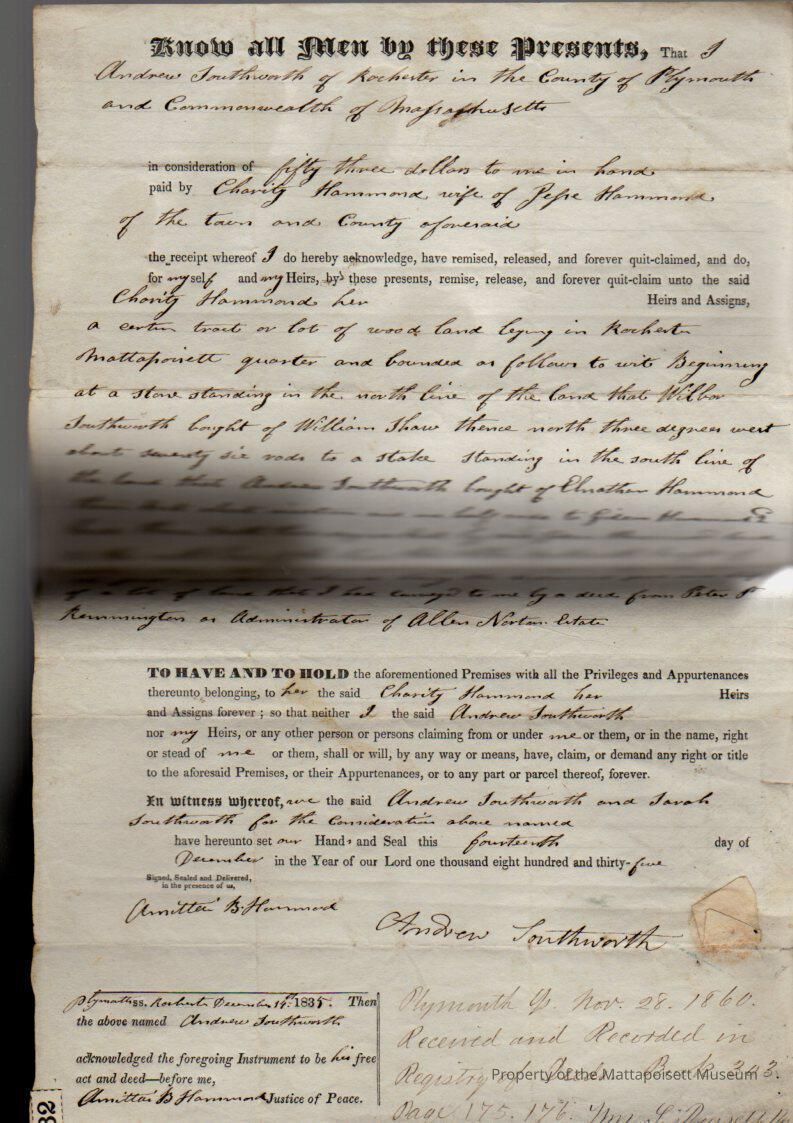 Know all Men by these Presents, That I
Andrew Southworth of Rochester in the County of Plymouth
and Commonwealth of Massachusetts
in consideration of fifty three dollars to me in hand
paid by Charity Hammond wife of Jesse Hammond
of the town and County aforesaid
the receipt whereof I do hereby acknowledge, have remised, released, and forever quit-claimed, and do,
for myself and my Heirs, by these presents, remise, release, and forever quit-claim unto the said
Charity Hammond her Heirs and Assigns,
a certain tract or lot of wood land lying in Rochester
Mattapoisett quarter and bounded as follows to wit Beginning
at a stone standing in the north line of the land that Wilbor
Southworth bought of William Shaw thence north three degrees west
about seventy six rods to a stake standing in the south line of
the land that Andrew Southworth bought of Elnathan Hammond
of a lot of land that I had conveyed to me by a deed from Peter
Remmington as Administrator of Allen Norton Estate
TO HAVE AND TO HOLD the aforementioned Premises with all the Privileges and Appurtenances
thereunto belonging, to her the said Charity Hammond her Heirs
and Assigns forever ; so that neither I the said Andrew Southworth
nor my Heirs, or any other person or persons claiming from or under me or them, or in the name, right
or stead of me or them, shall or will, by any way or means, have, claim, or demand any right or title
to the aforesaid Premises, or their Appurtenances, or to any part or parcel thereof, forever.
In witness whereof, we the said Andrew Southworth and Sarah
Southworth for the Consideration above named
have hereunto set our Hands and Seal this fourteenth day of
December in the Year of our Lord one thousand eight hundred and thirty-five
Signed, Sealed and Delivered,
in the presence of us,
Amittai B. Hammond
Andrew Southworth
Plymouth ss. Rochester December 14th 1835. Then
the above named Andrew Southworth
acknowledged the foregoing Instrument to be his free
act and deed—before me,
Amittai B Hammond Justice of Peace.
Plymouth ss. Nov. 28. 1860.
Received and Recorded in
Registry of Deeds Book 303.
Page 175. 176.
Property of the Mattapoisett Museum
32